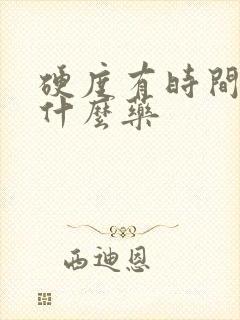 硬度有時間
什麼藥
西迪恩